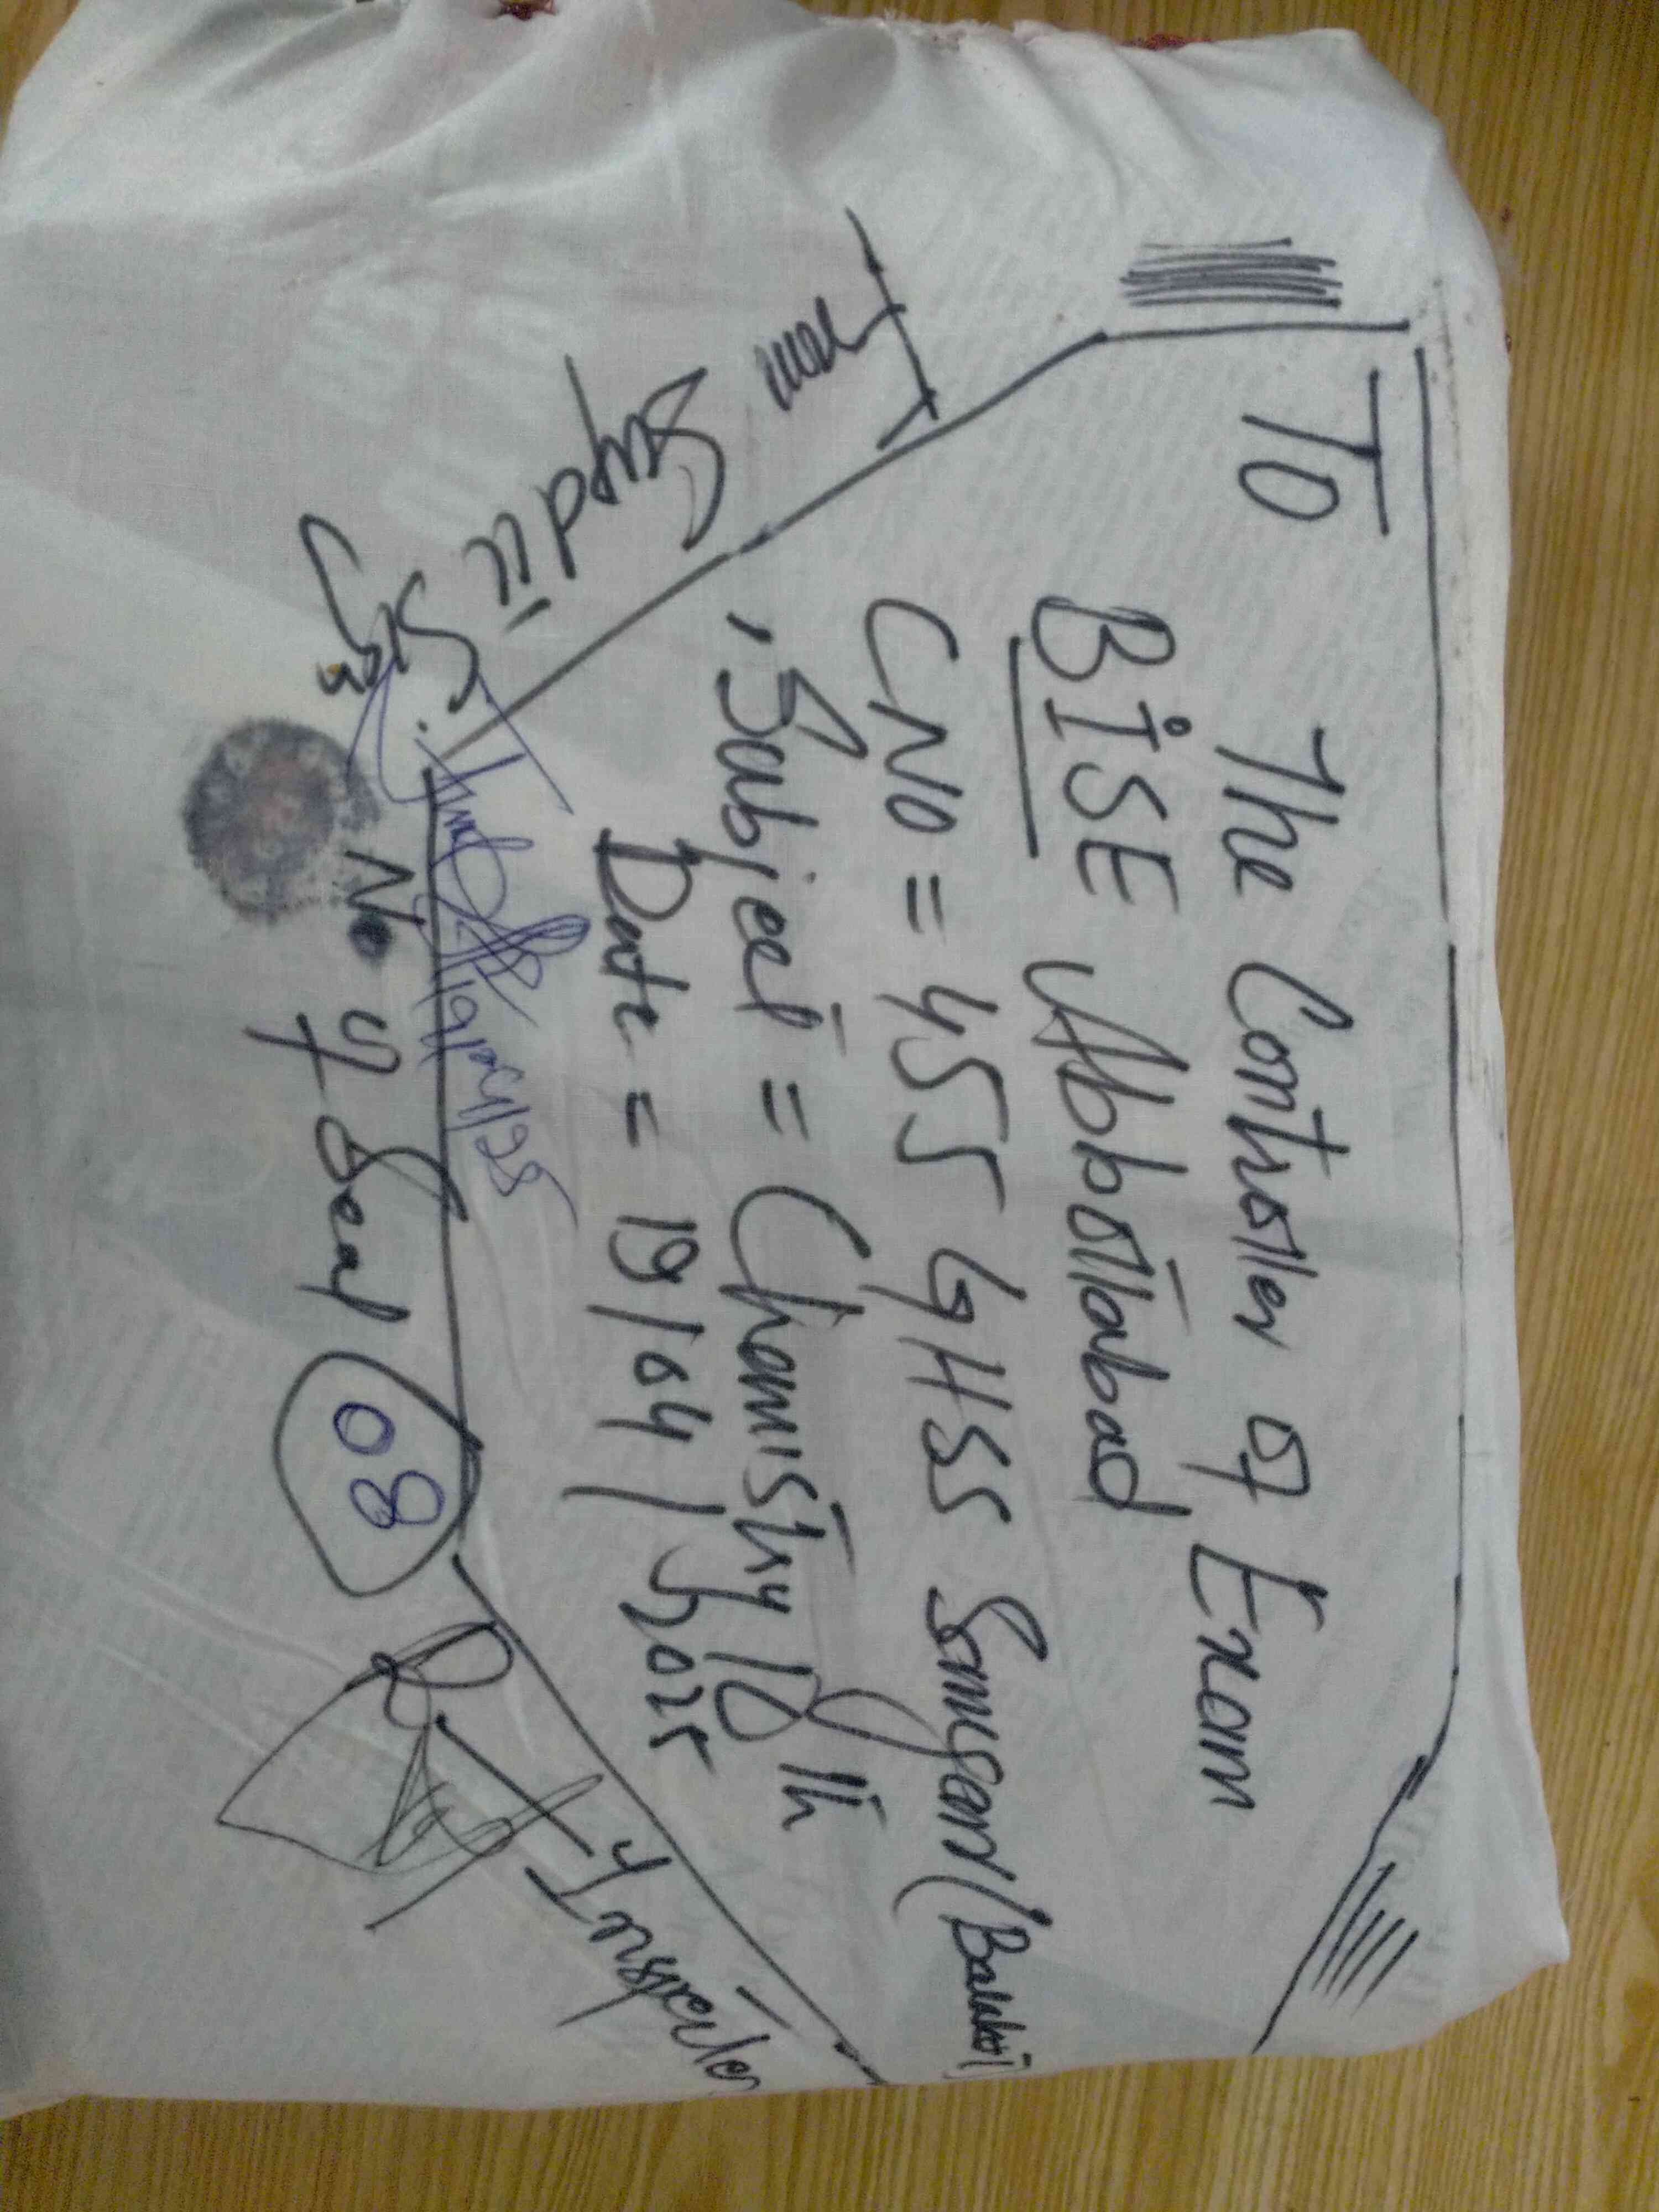 To
The Controller of Exam
BiSE Abbottabad
CNo = 455 GHSS Sangar (Balakot)
Subject = Chamistry 10th
Date = 19/04/2025
From
Supdtt
No of Seal 08
Inspector